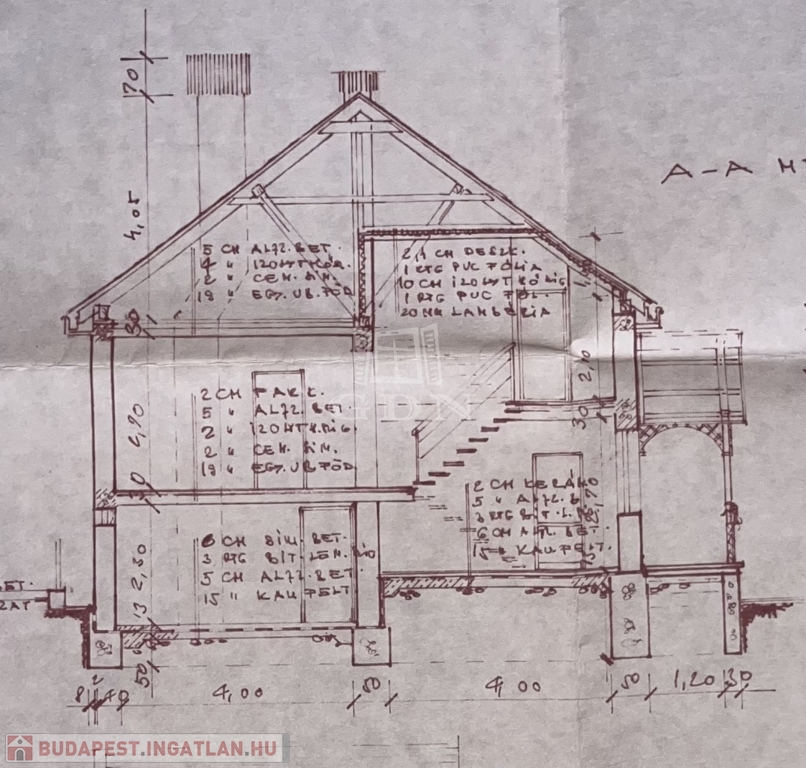 70
A-A
4,05
5 CM ALJZ. BET.
4 " IZOLYTKÖR.
2 " CEM. SIM.
19 " EGY. UB. FÖD
2,4 CM DESZK.
1 RTG PVC FÓLIA
10 CM IZOLYT KÖRIG
1 RTG PVC FÓL.
20 MM LAMBÉRIA
30
2,10
GDN
30
2 CM PARK.
5 " ALJZ. BET.
2 " IZOLYTKÖRIG
2 " CEM. SIM.
19 " EGY. UB. FÖD
2,90
30
2 CM KERÁM
5 " ALJZ. B
3 RTG BIT. L.
6 CM ALJZ. BET.
15 " KAV. FELT.
6 CM SIM. BET.
3 RTG BIT. LEM.
5 CM ALJZ. BET
15 " KAV. FELT
2,30
BET.
ZAT
13
50
8 2 40 4,00 50 4,00 50 1,20 30
BUDAPEST.INGATLAN.HU